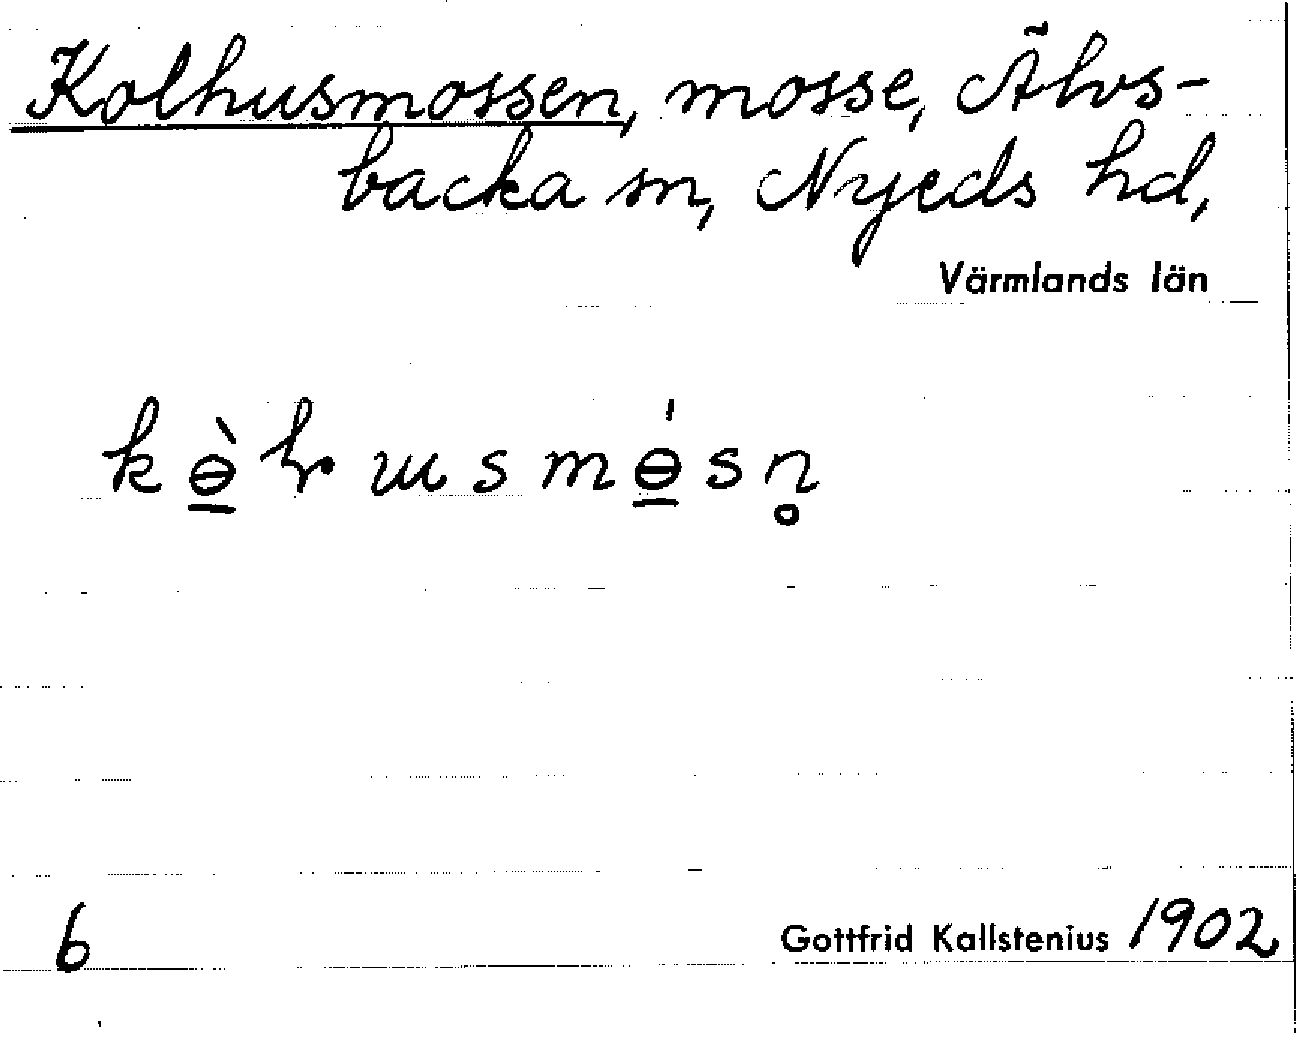 Kolhusmossen, mosse, Älvs-
backa sn, Nyeds hd,
Värmlands län
6
Gottfrid Kallstenius 1902